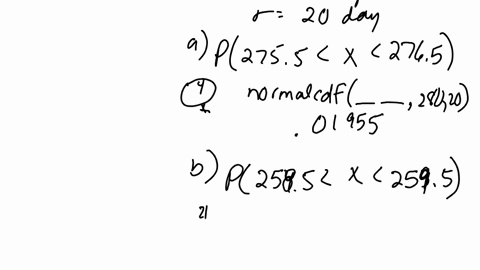 σ = 20 day
a) P(275.5 < X < 276.5)
normalcdf(_ _, 280, 20)
.01955
b) P(258.5 < X < 259.5)
21